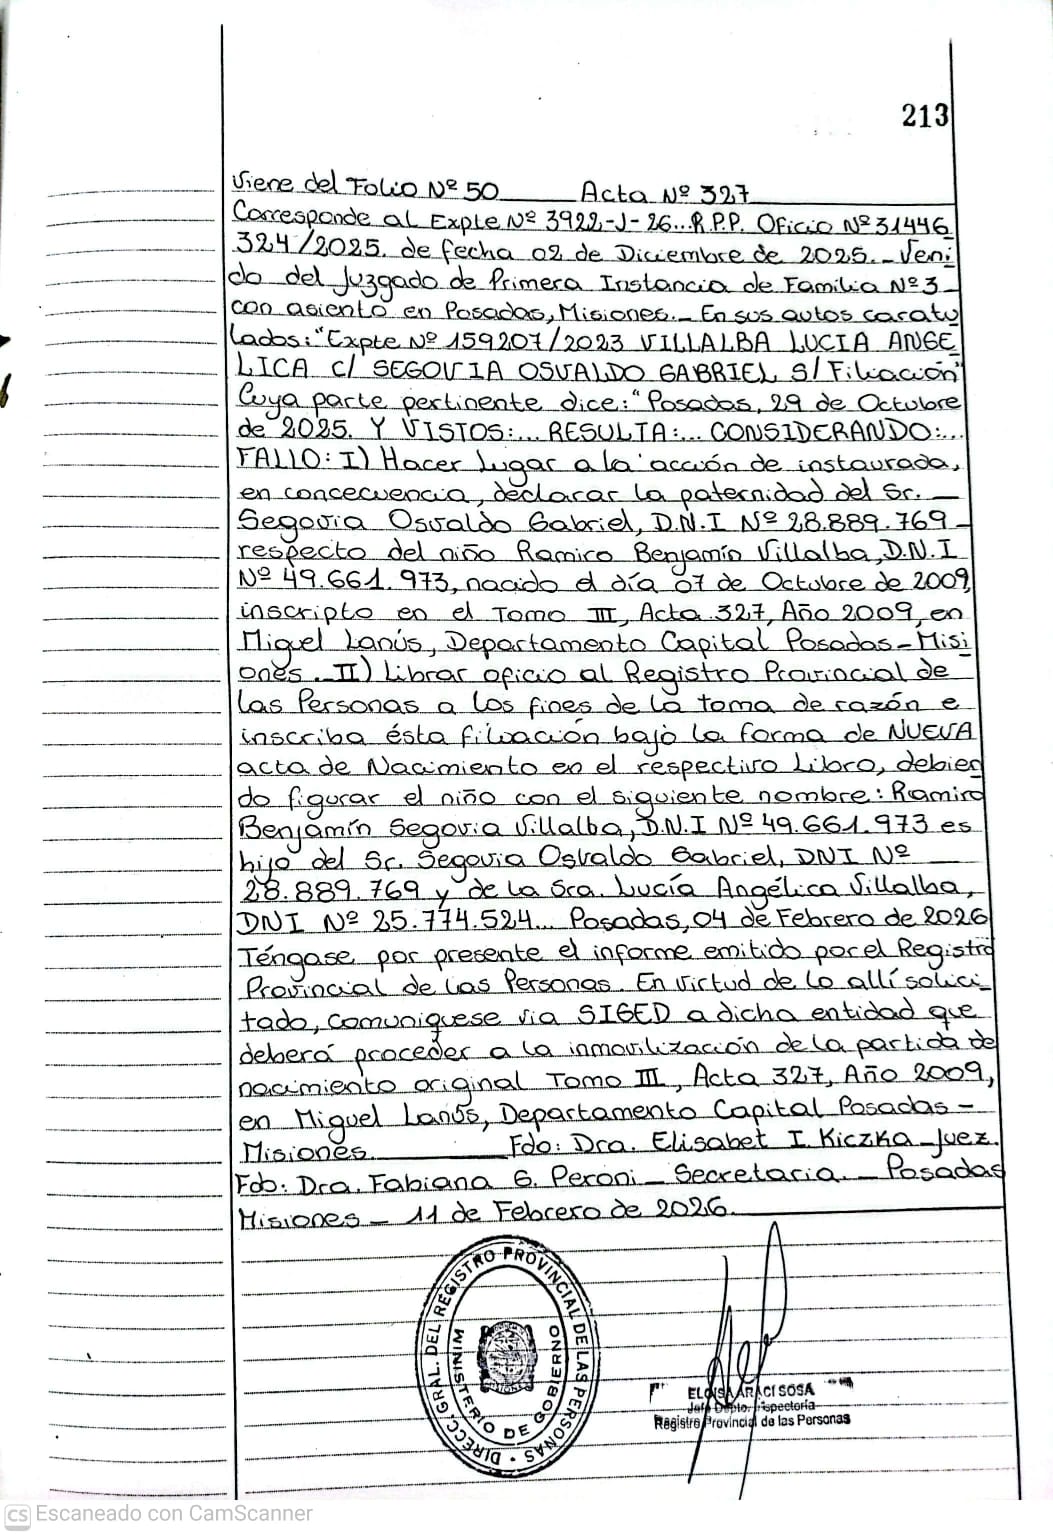 213
Viene del Folio Nº 50 Acta Nº 327
Corresponde al Expte Nº 3922-J-26...R.P.P. Oficio Nº 31446
324/2025. de fecha 02 de Diciembre de 2025.- Veni
do del Juzgado de Primera Instancia de Familia Nº 3
con asiento en Posadas, Misiones.- En sus autos caratu
lados: "Expte Nº 159207/2023 VILLALBA LUCIA ANGE
LICA C/ SEGOVIA OSVALDO GABRIEL S/ Filiación"
Cuya parte pertinente dice: "Posadas, 29 de Octubre
de 2025. Y VISTOS:... RESULTA:... CONSIDERANDO:...
FALLO: I) Hacer lugar a la acción de instaurada,
en concecuencia, declarar la paternidad del Sr.
Segovia Osvaldo Gabriel, D.N.I Nº 28.889.769
respecto del niño Ramiro Benjamín Villalba, D.N.I
Nº 49.661.973, nacido el día 07 de Octubre de 2009,
inscripto en el Tomo III, Acta 327, Año 2009, en
Miguel Lanús, Departamento Capital Posadas - Misi
ones. II) Librar oficio al Registro Provincial de
las Personas a los fines de la toma de razón e
inscriba ésta filiación bajo la forma de NUEVA
acta de Nacimiento en el respectivo Libro, debien
do figurar el niño con el siguiente nombre: Ramiro
Benjamín Segovia Villalba, D.N.I Nº 49.661.973 es
hijo del Sr. Segovia Osvaldo Gabriel, DNI Nº
28.889.769 y de la Sra. Lucía Angélica Villalba,
DNI Nº 25.774.524... Posadas, 04 de Febrero de 2026
Téngase por presente el informe emitido por el Registro
Provincial de las Personas. En virtud de lo allí solici
tado, comuníquese via SIGED a dicha entidad que
deberá proceder a la inmovilización de la partida de
nacimiento original Tomo III, Acta 327, Año 2009,
en Miguel Lanús, Departamento Capital Posadas -
Misiones. Fdo: Dra. Elisabet I. Kiczka - Juez.
Fdo: Dra. Fabiana G. Peroni - Secretaria. - Posadas
Misiones - 11 de Febrero de 2026.
DIRECC. GRAL. DEL REGISTRO PROVINCIAL DE LAS PERSONAS
MINISTERIO DE GOBIERNO
MISIONES
ELOISA ARACI SOSA
Jefe Depto. Inspectoría
Registro Provincial de las Personas
CS Escaneado con CamScanner